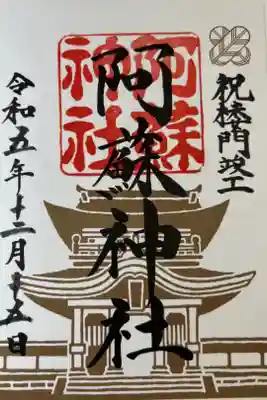 祝楼門竣工
阿蘇神社
阿蘇神社
令和五年十二月十五日